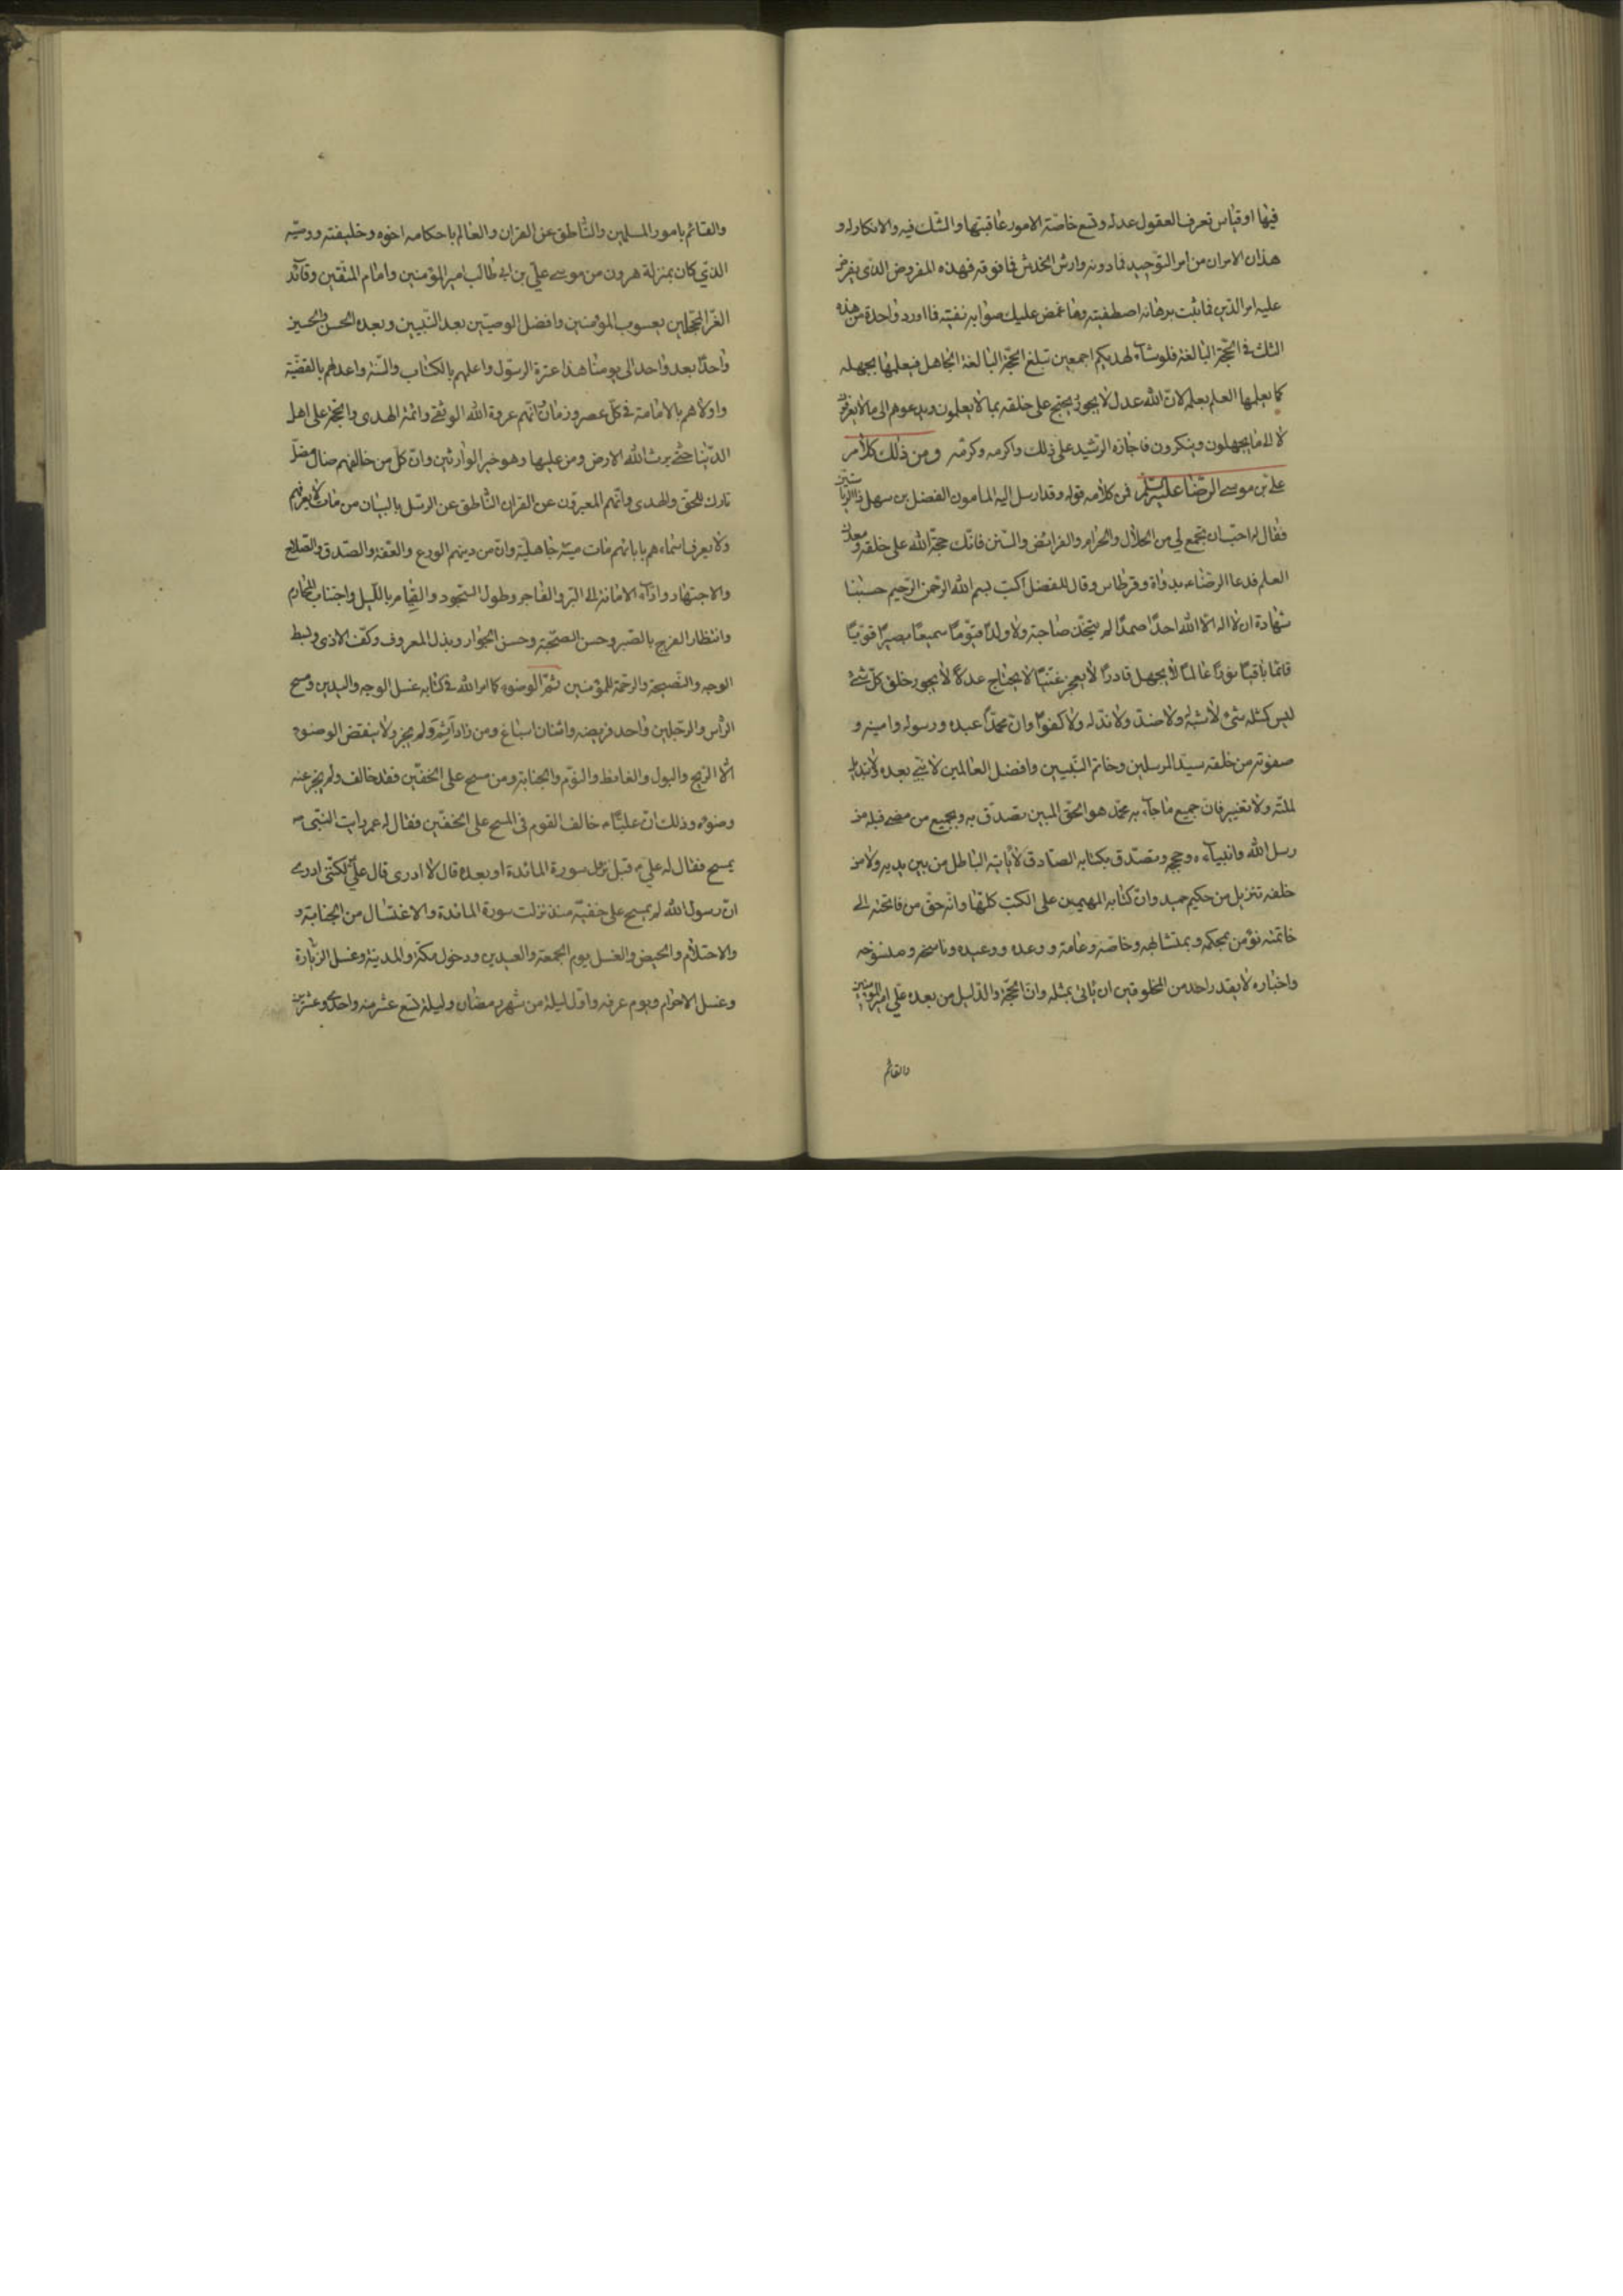 فيها او قياس تعرف العقول عدله وتسع خاصّة الامور عاقبتها والشّك فيه والانكار له و
هذان الامران من امر التوحيد فما دونه وارش الخدش فما فوقه فهذه المفروض الذى يفرض
عليه امر الدّين فما ثبت برهانه اصطفيته وما غمض عليك صوابه نفيته فما اورد واحدة من هذه
الثلث فى الحجّة البالغة فلو شاء لهديكم اجمعين تبلغ الحجّة البالغة الجاهل فيعلمها بجهله
كما يعلمها العلم بعلمه لانّ الله عدل لا يجور يحتج على خلقه بما لا يعلمون ويدعوهم الى ما لا يعرفون
لا الى ما يجهلون وينكرون فاجازه الرّشيد على ذلك واكرمه وكرمّه ومن ذلك كلام
على بن موسى الرّضا عليه السّلم فمن كلامه قوله وقد ارسل اليه المامون الفضل بن سهل ذا الرياستين
فقال له احبّ ان تجمع لى من الحلال والحرام والفرائض والسّنن فانّك حجّة الله على خلقه ومعدن
العلم فدعا الرضاء بدواة وقرطاس وقال للفضل اكتب بسم الله الرّحمن الرّحيم حسبنا
شهادة ان لا اله الّا الله احدًا صمدًا لم يتّخذ صاحبة ولا ولدًا قيّومًا سميعًا بصيرًا قويًّا
قائما باقيًا نورًا عالمًا لا يجهل قادرًا لا يعجز غنيًّا لا يحتاج عدلًا لا يجور خلق كلّ شئ
ليس كمثله شئ لا شبه له ولا ضدّ ولا ندّ له ولا كفوًا وانّ محمّدًا عبده ورسوله وامينه و
صفوته من خلقه سيّد المرسلين وخاتم النّبيين وافضل العالمين لا نبى بعده لا تبديل
لملّته ولا تغيير فانّ جميع ما جاء به محمّد هو الحقّ المبين تصدّق به وبجميع من مضى قبله من
رسل الله وانبياءه وحججه وتصدّق بكتابه الصّادق لا ياتيه الباطل من بين يديه ولا من
خلفه تنزيل من حكيم حميد وانّ كتابه المهيمن على الكتب كلّها وانّه حقّ من فاتحته الى
خاتمته نؤمن بمحكمه وبمتشابهه وخاصّه وعامّه ووعده ووعيده وناسخه ومنسوخه
واخباره لا يقدر احد من المخلوقين ان ياتى بمثله وانّ الحجّة والدّليل من بعده على امير المؤمنين
والقائم
والقائم بامور المسلمين والنّاطق عن القران والعالم باحكامه اخوه وخليفته ووصيّه
الذى كان بمنزلة هرون من موسى علىّ بن ابى طالب امير المؤمنين وامام المتّقين وقائد
الغرّ المحجّلين يعسوب المؤمنين وافضل الوصيّين بعد النّبيين وبعده الحسن والحسين
واحدًا بعد واحد الى يومنا هذا عترة الرسّول واعلمهم بالكتاب والسّنة واعدلهم بالقضيّة
واولاهم بالامامة فى كلّ عصر وزمان وانّهم عروة الله الوثقى وائمّة الهدى والحجّة على اهل
الدّنيا حتّى يرث الله الارض ومن عليها وهو خير الوارثين وانّ كلّ من خالفهم ضال مضلّ
تارك للحق والهدى وانّهم المعبرون عن القران النّاطق عن الرسّل بالبيان من مات لا يعرفهم
ولا يعرف اسماءهم بابائهم مات ميتة جاهليّة وانّ من دينهم الورع والعفّة والصّدق والصّلاح
والاجتهاد واداء الامانة الى البرّ والفاجر وطول السّجود والقيام بالليل واجتناب المحارم
وانتظار الفرج بالصّبر وحسن الصحّبة وحسن الجوار وبذل المعروف وكفّ الاذى وبسط
الوجه والنّصيحة والرحمّة للمؤمنين ثمّ الوضوء كما امر الله فى كتابه غسل الوجه واليدين ومسح
الرّاس والرجّلين واحد فريضة واثنان اسباغ ومن زاد اثم ولم يجز ولا ينقض الوضوء
الّا الرّيح والبول والغايظ والنّوم والجنابة ومن مسح على الخفّين فقد خالف ولم يجز عنه
وضوءه وذلك انّ عليّا خالف القوم فى المسح على الخفّين فقال له عمر رايت النّبى
يمسح فقال له علىّ قبل نزول سورة المائدة او بعده قال لا ادرى قال علىّ لكنّى ادرى
انّ رسول الله لم يمسح على خفّيه منذ نزلت سورة المائدة والاغتسال من الجنابة و
والاحتلام والحيض والغسل يوم الجمعة والعيدين ودخول مكة والمدينة وغسل الزّيارة
وغسل الاحرام ويوم عرفة واوّل ليلة من شهر رمضان وليلة تسع عشر منه واحدى وعشرين